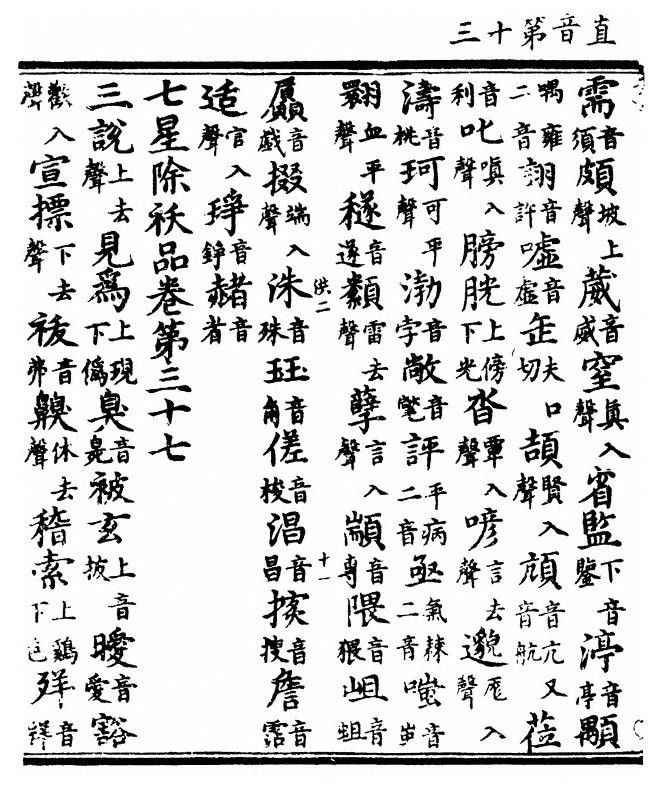 直音第十三
需音須頗坡上聲葳音威窒真入聲省監下音鑒渟音亭顒
喁雍二音詡音許噓音虛缶夫口切頡賢入聲頏音亢又音航蒞
音利叱嗔入聲膀胱上傍下光沓覃入聲喭言去聲邈尨入聲
濤音桃珂可平聲渤音孛敞音氅評平病二音亟氣棘二音嗤音蚩
翾血平聲穟音遂纇雷去聲孽言入聲顓音專隈音猥岨音蛆
洪二 十一
贔音戲掇端入聲洙音殊玨音角傞音梭淐音昌音搜詹音霑
适官入聲琤音錚赭音者
七星除祅品卷第三十七
三說上去聲見爲上現下僞臭音被玄上音披曖音愛豁
歡入聲宣摽下去聲祓音弗齅休去聲稽索上鷄下色音祥